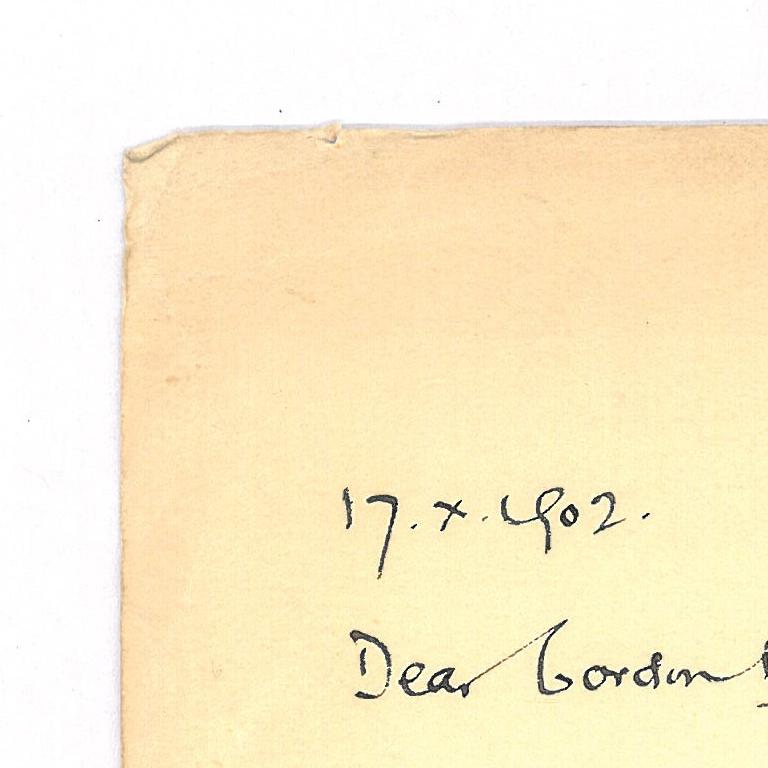 17.x.1902.
Dear Gordon